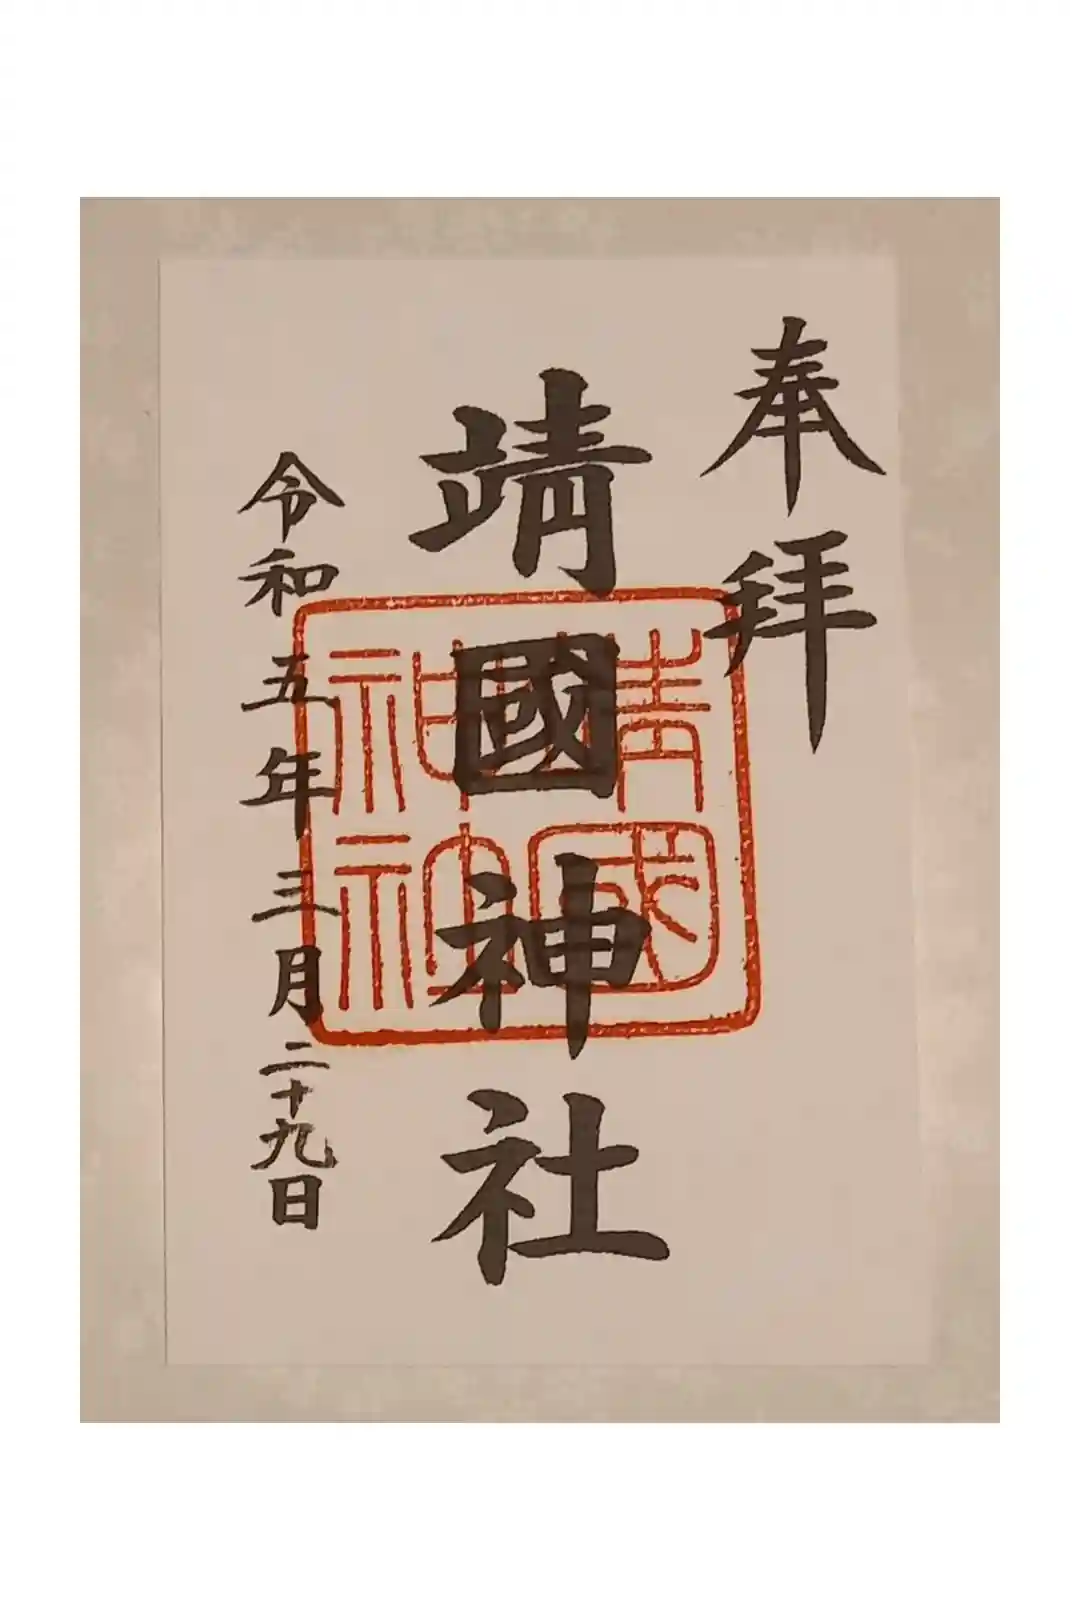 奉拝
靖國神社
靖國
神社
令和五年三月二十九日